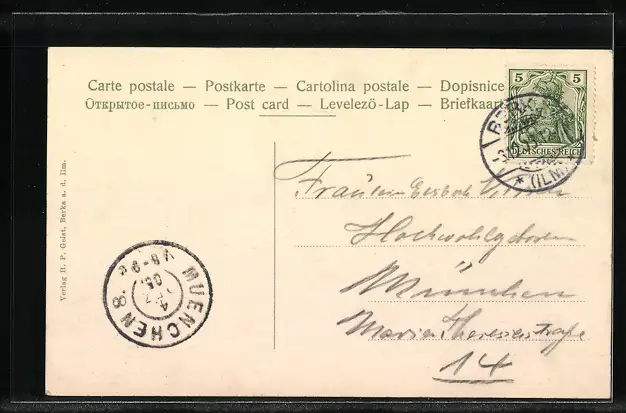 Carte postale — Postkarte — Cartolina postale — Dopisnice
Открытое-письмо — Post card — Levelező-Lap — Briefkaart
5 5
DEUTSCHES REICH
BERKA
* (ILM)
Fräulein
Hochwohlgeboren
München
Maria Theresiastraße
14
MUENCHEN 8.
V 8-9
4 FEZ
05.
Verlag H. P. Geist, Berka a. d. Ilm.